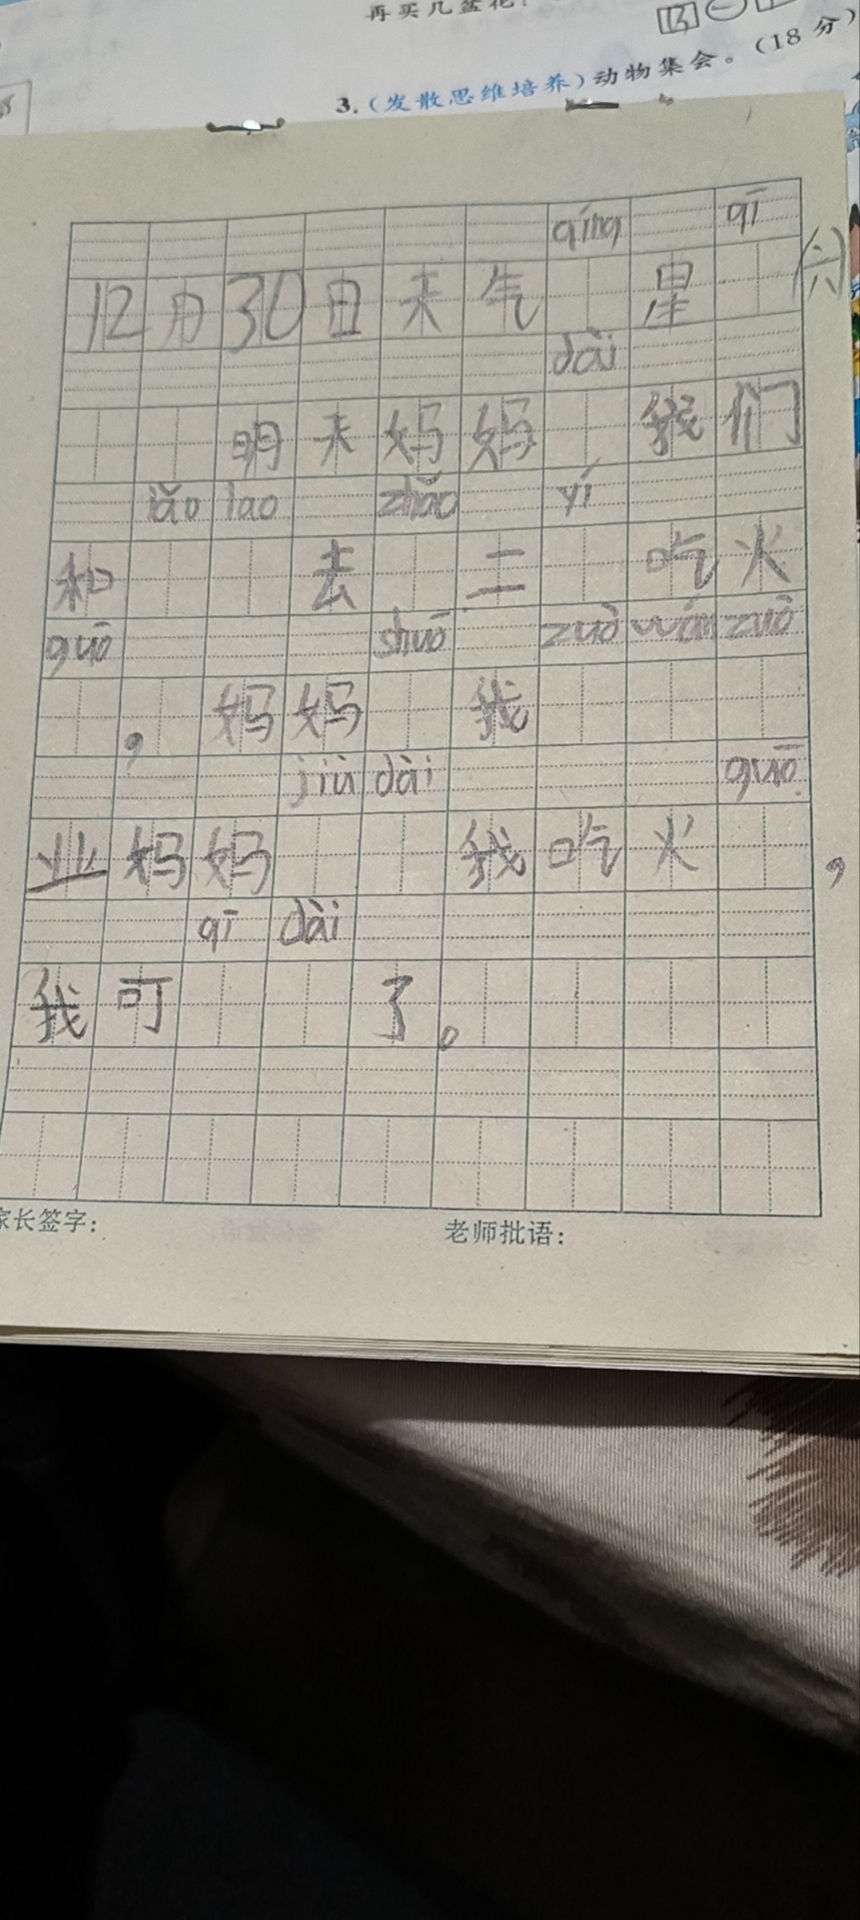 再买几盆花!
3.(发散思维培养)动物集会。(18分)
qíng qī
12月30日天气 星 (六)
dài
明天妈妈 我们
lǎo lao zhǎo yí
和 去 二 吃火
guō shuō zuò wán zuō
，妈妈 我
jiù dài guō
业妈妈 我吃火 ，
qī dài
我可 了。
家长签字：
老师批语：